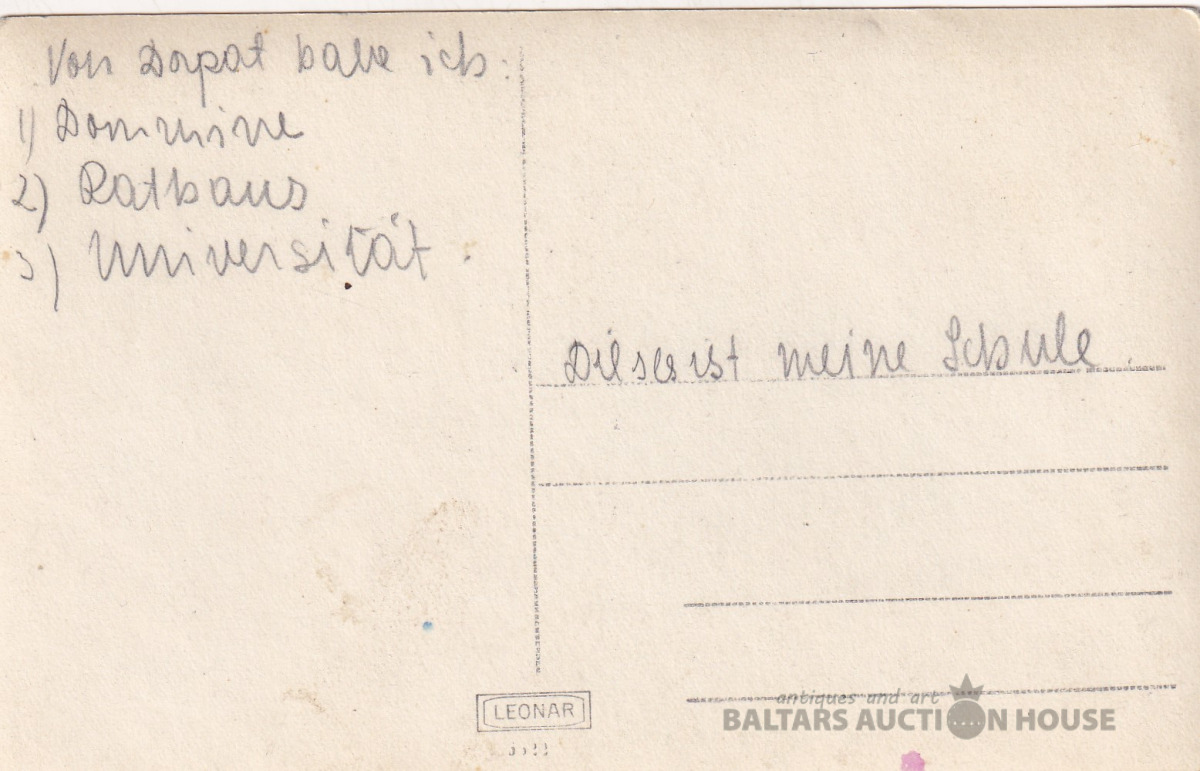 Von Dorpat habe ich:
1) Domruine
2) Rathaus
3) Universität.
Dieses ist meine Schule.
LEONAR
antiques and art
BALTARS AUCTION HOUSE